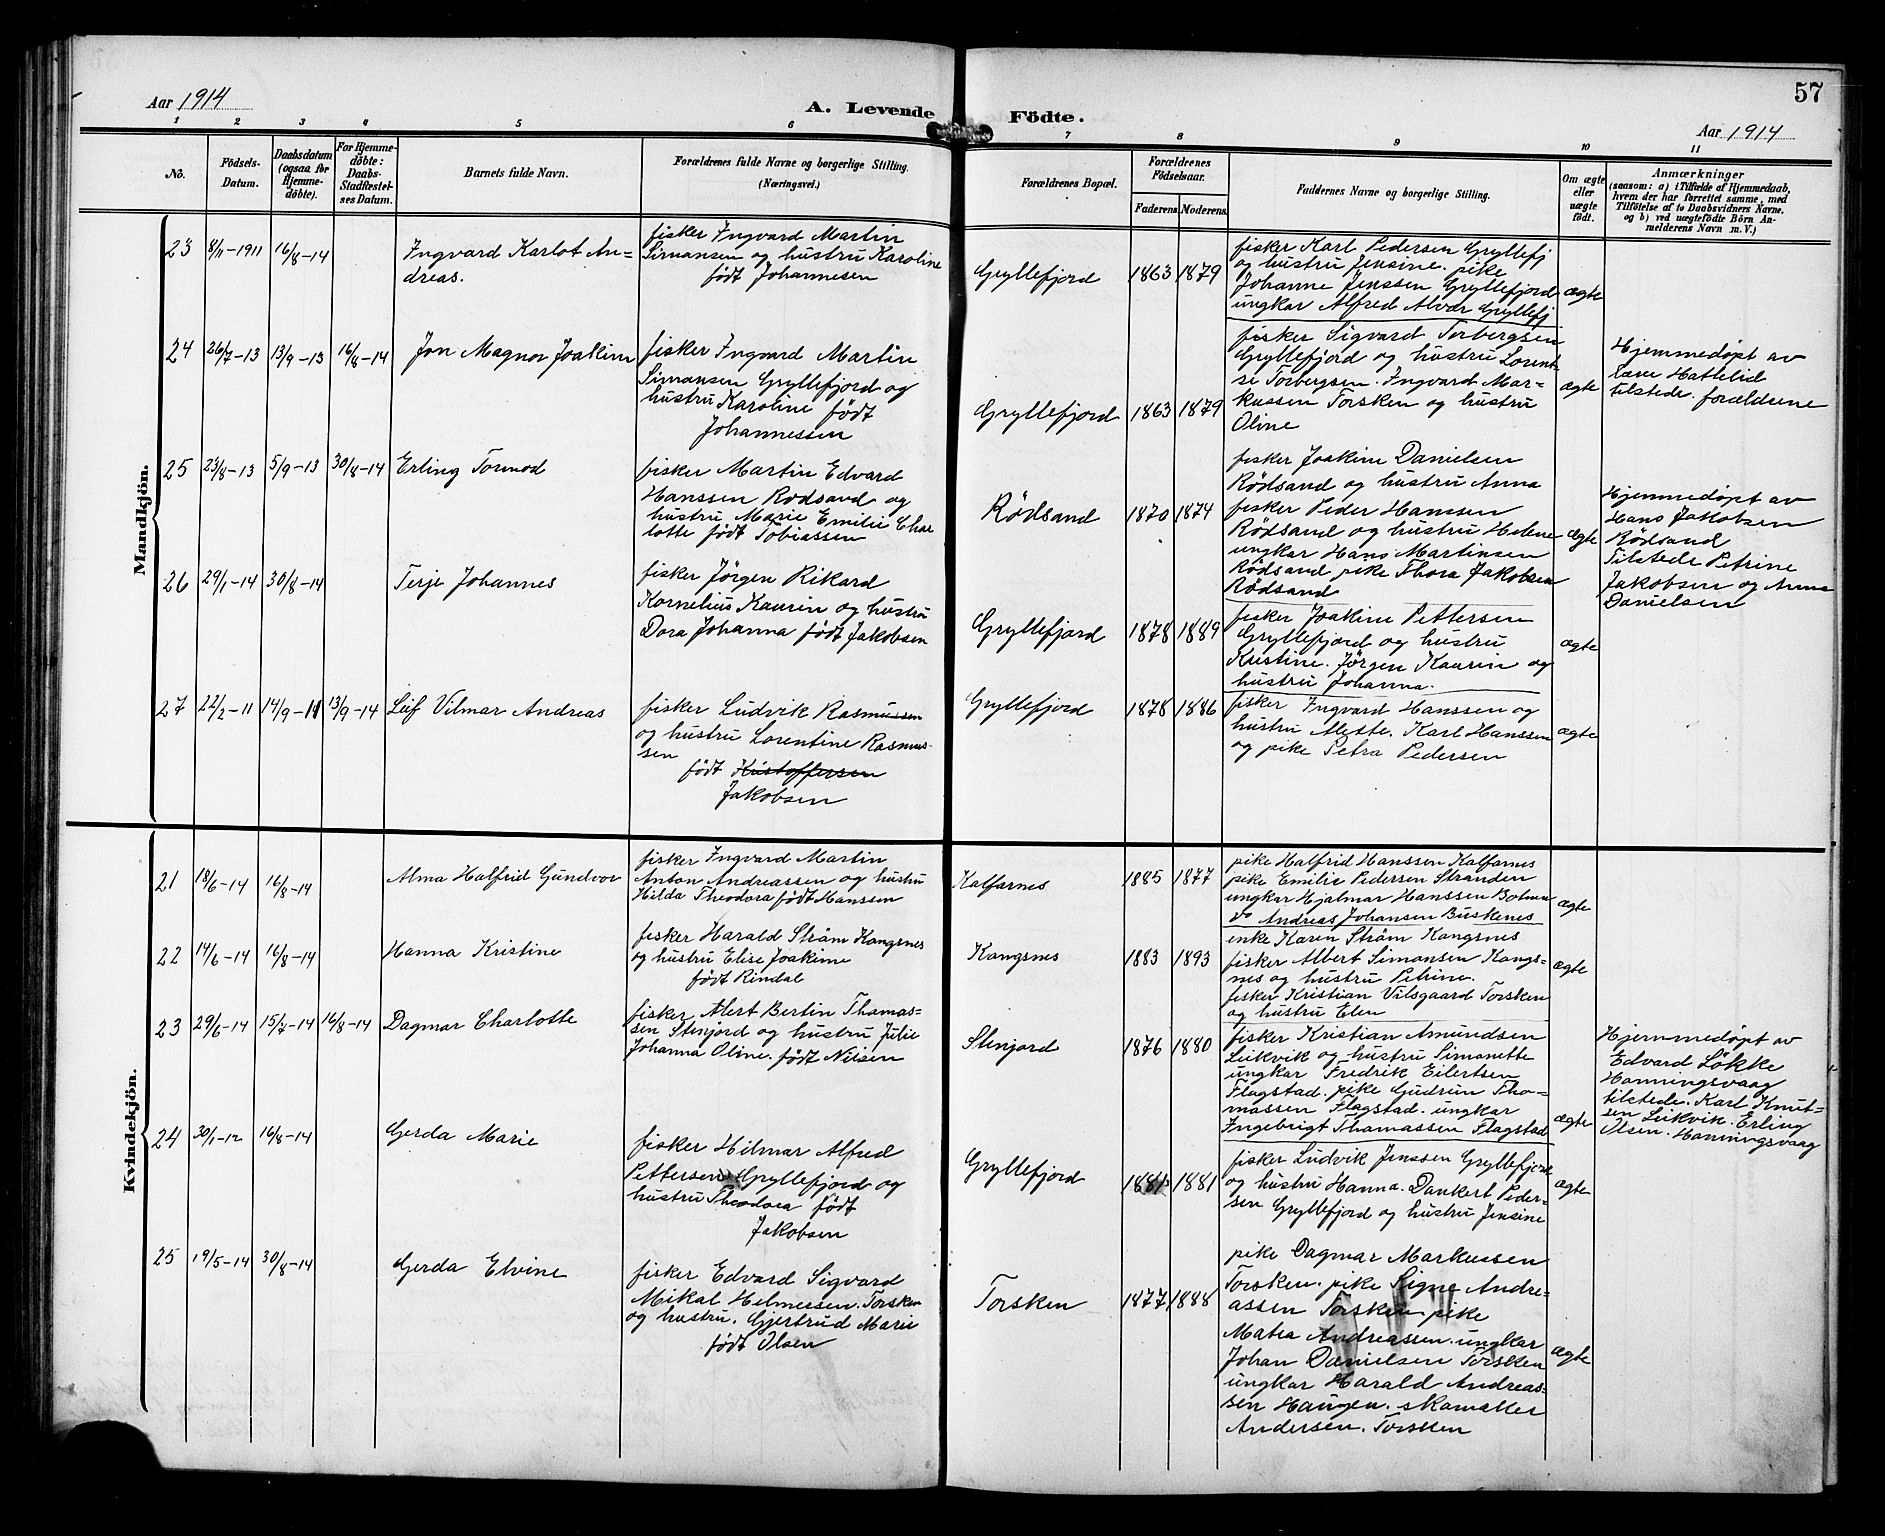 Aar 1914
A. Levende
Födte.
57
Aar 1914
1 2 3 4 5 6 7 8 9 10 11
No.
Födsels-
Datum.
Daabsdatum
(ogsaa for
Hjemme-
döbte).
For Hjemme-
döbte:
Daabs-
Stadfæstel-
ses Datum.
Barnets fulde Navn.
Forældrenes fulde Navne og borgerlige Stilling.
(Næringsvei.)
Forældrenes Bopæl.
Forældrenes
Födselsaar.
Faderens. Moderens.
Faddernes Navne og borgerlige Stilling.
Om ægte
eller
uægte
födt.
Anmærkninger
(saasom: a) i Tilfælde af Hjemmedaab,
hvem der har forrettet samme, med
Tilföielse af to Daabsvidners Navne.
og b) ved uægtefödte Börn An-
melderens Navn m. V.)
Mandkjön.
23 8/11-1911 16/8-14
Ingvard Karlot An=
dreas.
fisker Ingvard Martin
Simansen og hustru Karoline
født Johannesen
Gryllefjord 1863 1879
fisker Karl Pedersen Gryllefj
og hustru Jensine. pike
Johanne Jenssen Gryllefjord
ungkar Alfred Alvar Gryllefj
ægte
24 26/7-13 13/9-13 16/8-14
Jon Magnor Joakim
fisker Ingvard Martin
Simansen Gryllefjord og
hustru Karoline født
Johannessen
Gryllefjord 1863 1879
fisker Sigvard Torbergsen
Gryllefjord og hustru Lorent-
se Torbergsen. Ingvard Mar-
kussen Torsken og hustru
Oline
ægte
Hjemmedøpt av
Hattelid
tilstede. forældrene
25 23/8-13 5/9-13 30/8-14
Erling Tormod
fisker Martin Edvard
Hanssen Rødsand og
hustru Marie Emilie Char
lotte født Tobiassen
Rödsand 1870 1874
fisker Joakim Danielsen
Rödsand og hustru Anna
fisker Peder Hanssen
Rödsand og hustru Helene
ungkar Hans Martinsen
Rödsand pike Thora Jakobsen
Rödsand
ægte
Hjemmedøpt av
Hans Jakobsen
Rödsand
Tilstede Petrine
Jakobsen og Anna
Danielsen
26 29/1-14 30/8-14
Terje Johannes
fisker Jörgen Rikard
Kornelius Kaurin og hustru
Dora Johanna født Jakobsen
Gryllefjord 1878 1889
fisker Joakim Pettersen
Gryllefjord og hustru
Kristine. Jörgen Kaurin og
hustru Johanna.
ægte
27 22/2-11 14/9-11 13/9-14
Leif Vilmar Andreas
fisker Ludvik Rasmussen
og hustru Lorentine Rasmus-
sen
født Kristoffersen
Jakobsen
Gryllefjord 1878 1886
fisker Ingvard Hanssen og
hustru Aleste. Karl Hanssen
og pike Petra Pedersen
ægte
Kvindekjön.
21 18/6-14 16/8-14
Alma Halfrid Gundvor
fisker Ingvard Martin
Anton Andreassen og hustru
Hilda Theodora født Hanssen
Kalfarnes 1885 1877
pike Halfrid Hanssen Kalfarnes
pike Emilie Pedersen Stranden
ungkar Hjalmar Hanssen Botnen
do Andreas Johansen Buskenes
ægte
22 14/6-14 16/8-14
Hanna Kristine
fisker Harald Ström Kongsnes
og hustru Elise Joakime
født Rindal
Kongsnes 1883 1893
enke Karen Ström Kongsnes
fisker Albert Simonsen Kongs=
nes og hustru Petrine.
fisker Kristian Vilsgaard Torsken
og hustru Elen
ægte
23 29/6-14 15/7-14 16/8-14
Dagmar Charlotte
fisker Alert Bertin Thomas-
sen Stenjord og hustru Julie
Johanna Oline. født Nilsen
Stenjord 1876 1880
fisker Kristian Amundsen
Leikvik og hustru Simonette
ungkar Fredrik Eilertsen
Flagstad. pike Gudrun Tho-
massen Flagstad. ungkar
Ingebrigt Thomassen Flagstad
ægte
Hjemmedøpt av
Edvard Lökke
Honningsvaag
tilstede. Karl Knut-
sen Leikvik. Erling
Olsen. Honningsvaag
24 30/1-12 16/8-14
Gerda Marie
fisker Hilmar Alfred
Pettersen Gryllefjord og
hustru Theodora født
Jakobsen
Gryllefjord 1881 1881
fisker Ludvik Jenssen Gryllefjord
og hustru Hanna. Dankert Peder-
sen Gryllefjord og hustru Jensine
ægte
25 19/5-14 30/8-14
Gerda Elvine
fisker Edvard Sigvard
Mikal Helmersen. Torsken
og hustru. Gjertrud Marie
født Olsen
Torsken 1877 1888
pike Dagmar Markussen
Torsken. pike Signe Andre=
assen Torsken. pike
Matea Andreassen. ungkar
Johan Danielsen Torsken
ungkar Harald Andreas=
sen Haugen. skomaker
Andersen. Torsken
ægte